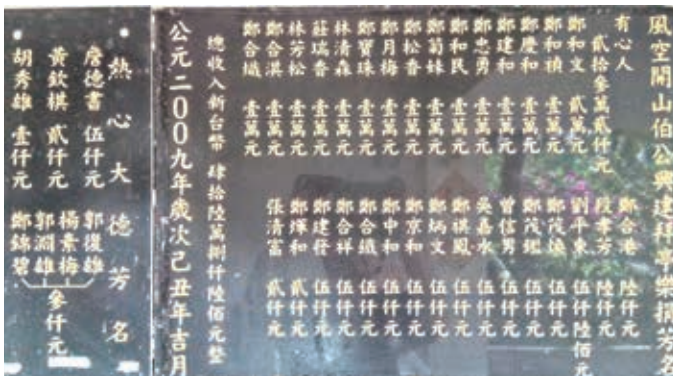 風空開山伯公興建拜亭樂捐芳名
有心人 貳拾參萬貳仟元
鄭和文 貳萬元
鄭和禎 壹萬元
鄭慶和 壹萬元
鄭建和 壹萬元
鄭忠勇 壹萬元
鄭和民 壹萬元
鄭菊妹 壹萬元
鄭松香 壹萬元
鄭月梅 壹萬元
鄭寶珠 壹萬元
林清森 壹萬元
莊瑞香 壹萬元
林芳松 壹萬元
鄭合淇 壹萬元
鄭合熾 壹萬元
鄭合港 陸仟元
段孝芳 陸仟元
劉平東 伍仟陸佰元
鄭茂 伍仟元
鄭茂 伍仟元
曾信男 伍仟元
吳嘉水 伍仟元
鄭祺鳳 伍仟元
鄭炳文 伍仟元
鄭京和 伍仟元
鄭中和 伍仟元
鄭合鐵 伍仟元
鄭合祥 伍仟元
鄭建發 伍仟元
鄭煇和 貳仟元
張清富 貳仟元
總收入新台幣 肆拾陸萬捌仟陸佰元整
公元二00九年歲次己丑年吉月
熱心大德芳名
詹德書 伍仟元
黃欽棋 貳仟元
胡秀雄 壹仟元
郭復雄
楊素梅
郭淵雄
鄭錦碧
參仟元